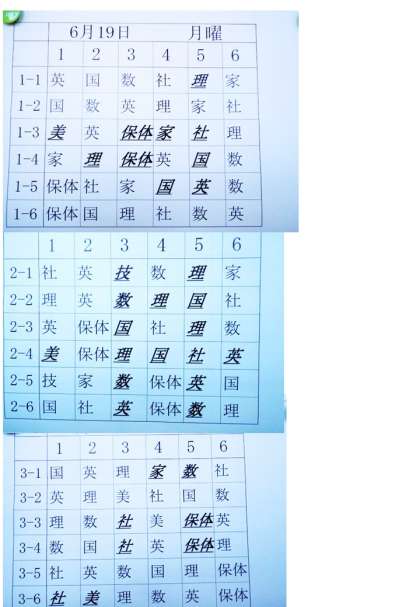 6月19日 月曜
1 2 3 4 5 6
1-1 英 国 数 社 理 家
1-2 国 数 英 理 家 社
1-3 美 英 保体 家 社 理
1-4 家 理 保体 英 国 数
1-5 保体 社 家 国 英 数
1-6 保体 国 理 社 数 英
1 2 3 4 5 6
2-1 社 英 技 数 理 家
2-2 理 英 数 理 国 社
2-3 英 保体 国 社 理 数
2-4 美 保体 理 国 社 英
2-5 技 家 数 保体 英 国
2-6 国 社 英 保体 数 理
1 2 3 4 5 6
3-1 国 英 理 家 数 社
3-2 英 理 美 社 国 数
3-3 理 数 社 美 保体 英
3-4 数 国 社 英 保体 理
3-5 社 英 数 国 理 保体
3-6 社 美 理 数 英 保体